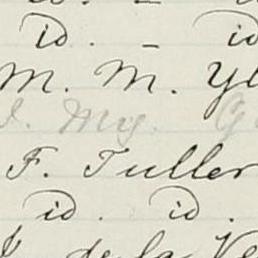 id. - id
M. M. Y
J. Mig. G
F. Fuller
id. id.
J. de la Ve